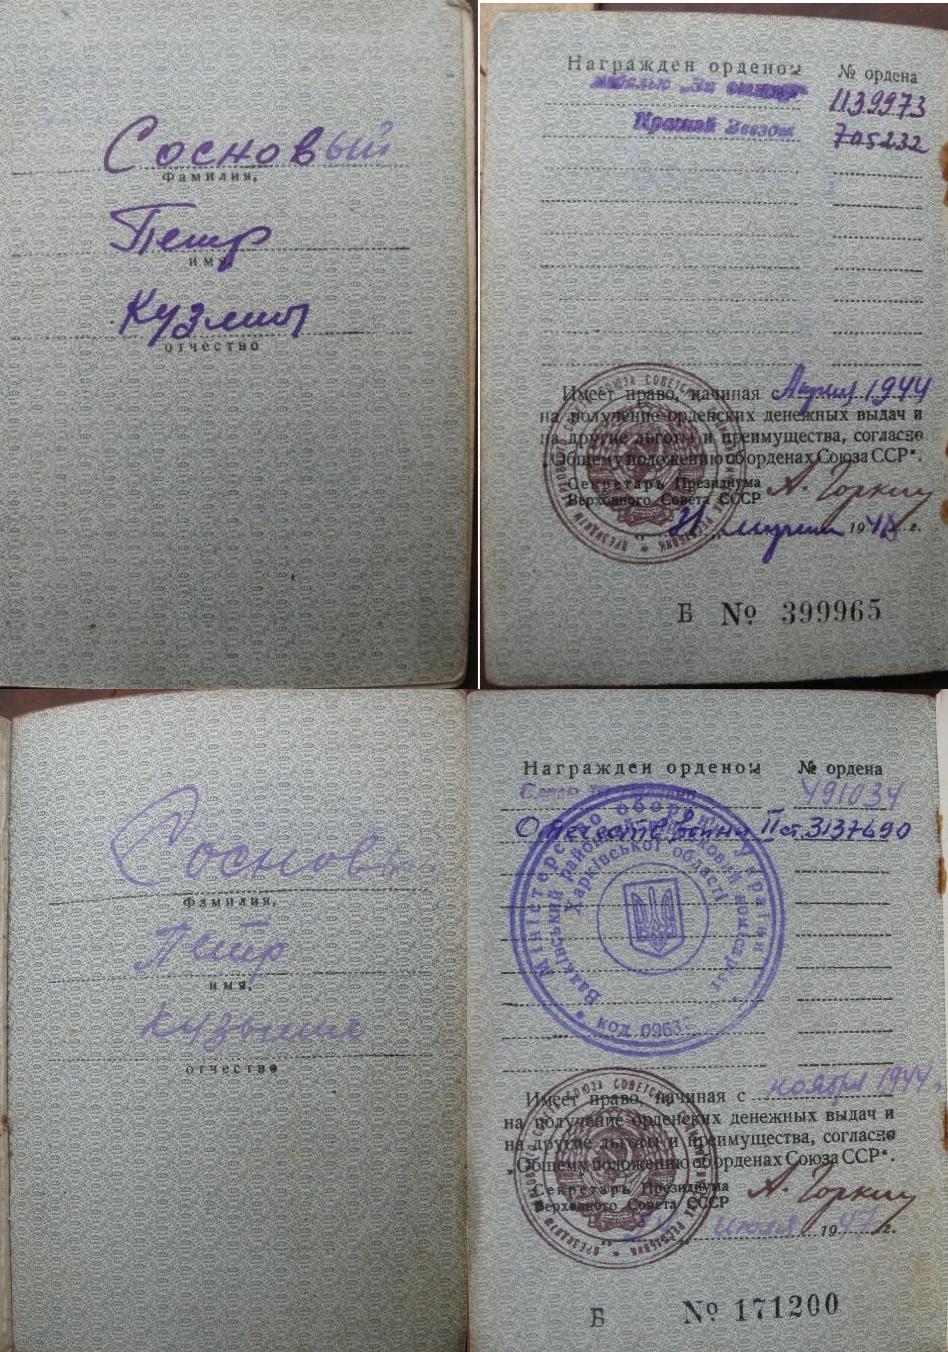 Сосновый
фамилия,
Петр
имя,
Кузмич
отчество
Награжден орденом № ордена
медалью „За отвагу" 1139973
Красной Звезды 705232
Имеет право, начиная с Апреля 1944
на получение орденских денежных выдач и
на другие льготы и преимущества, согласно
"Общему положению об орденах Союза ССР".
Секретарь Президиума
Верховного Совета СССР А. Горкин
марта 19 г.
Б № 399965
Сосновы
фамилия,
Петр
имя,
Кузьмич
отчество
Награжден орденом № ордена
491034
Отечеств войны II ст. 3137690
Міністерство оборони України
Валківський районний військовий комісаріат
Харківської області
код 09637
Имеет право, начиная с ноября 1944
на получение орденских денежных выдач и
на другие льготы и преимущества, согласно
"Общему положению об орденах Союза ССР".
Секретарь Президиума
Верховного Совета СССР А. Горкин
июля 1947 г.
Б № 171200